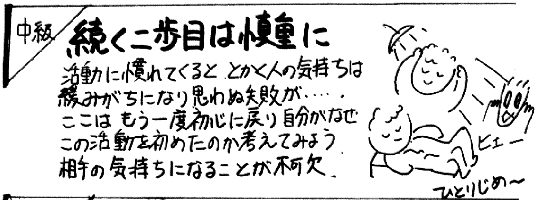 中級
続く二歩目は慎重に
活動に慣れてくると とかく人の気持ちは
緩みがちになり思わぬ失敗が・・・・・
ここは もう一度初心に戻り自分がなぜ
この活動を初めたのか考えてみよう
相手の気持ちになることが不可欠
ピェー
ひとりじめ〜